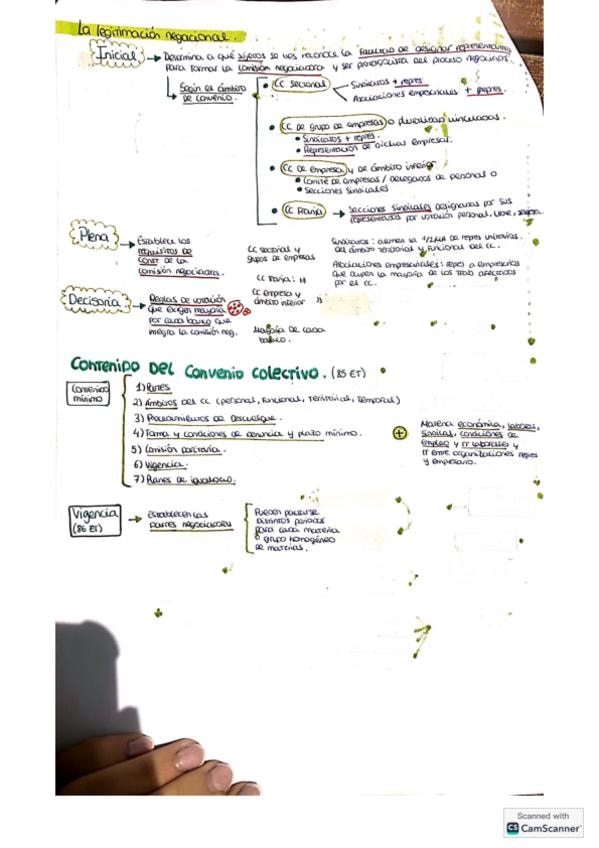 La legitimación negocional.
Inicial → Determina a qué sujetos se les reconoce la facultad de designar representantes
para formar la comisión negociadora y ser protagonista del proceso negocional.
Según el ámbito
de convenio.
• CC sectorial
Sindicatos + repres.
Asociaciones empresariales + repres.
• CC de grupo de empresas o pluralidad vinculadas.
• Sindicatos + repres.
• Representación de dichas empresas.
• CC de empresa y de ámbito inferior
• Comité de empresas / delegados de personal o
• Secciones sindicales
• CC Franja → Secciones sindicales designadas por sus
representados por votación personal, libre,
Plena → Establece los
requisitos de
const de la
comisión negociadora.
CC sectorial y
grupos de empresas
CC Franja: "
CC empresa y
ámbito inferior
Sindicatos: asuman la 1/2 de repres unitarios.
del ámbito territorial y funcional del CC.
Asociaciones empresariales: repres a empresarios
que ocupen la mayoría de los trab afectados
por el CC.
Decisoria → Reglas de votación
que exigen mayoría
por cada banco que
integra la comisión neg.
Mayoría de cada
banco.
Contenido del Convenio Colectivo. (85 ET)
Contenido
mínimo
1) Partes
2) Ámbitos del CC (personal, funcional, territorial, temporal)
3) Procedimientos de descuelgue.
4) Forma y condiciones de denuncia y plazo mínimo.
5) Comisión paritaria.
6) Vigencia.
7) Planes de igualdad.
+ Materia económica, laboral,
sindical, condiciones de
empleo y rr laborales y
rr entre organizaciones repres
y empresario.
Vigencia
(86 ET)
→ Establecen las
partes negociadoras
Pueden pactarse
distintos periodos
para cada materia
o grupo homogéneo
de materias.
Scanned with
CS CamScanner